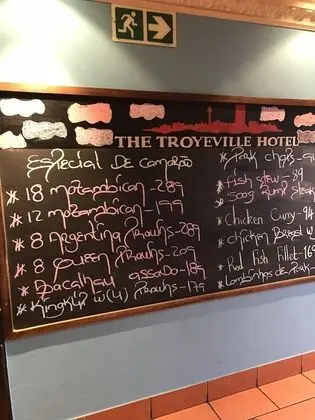 THE TROYEVILLE HOTEL
Especial DE Camarão
* 18 mozambican - 289
* 12 mozambican - 199
* 8 Argentina Prawns - 289
* 8 Queen Prawns - 209
* Bacalhau assado - 189
* Kingklip w (4) Prawns - 179
* Pork chops -
* fish stew -
500g Rump Steak
* Chicken Curry - 94
* chicken Breast w
* Red Fish Fillet - 16
* Lombinhos de Pork -